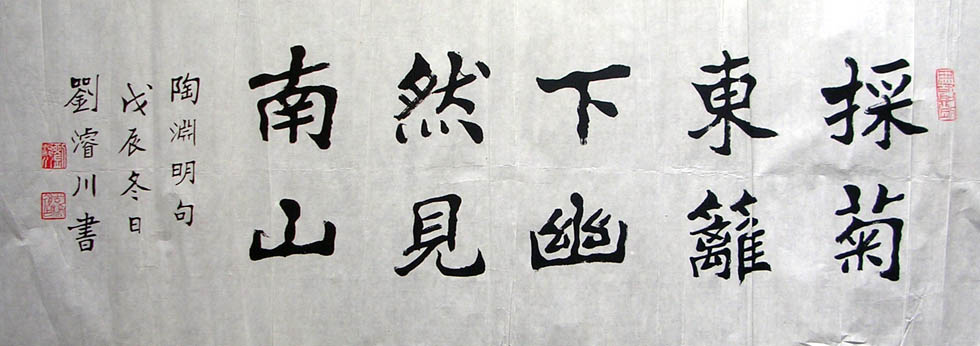 採菊
東籬
下幽
然見
南山
陶淵明句
戊辰冬日
劉濬川書